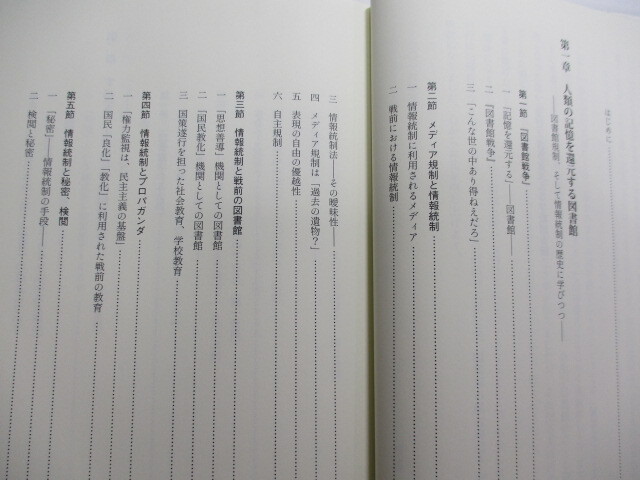 はじめに
第一章 人類の記憶を還元する図書館
――図書館規制、そして情報統制の歴史に学びつつ――
第一節 『図書館戦争』
一 「記憶を還元する」――図書館――
二 『図書館戦争』
三 「こんな世の中あり得ねえだろ」
第二節 メディア規制と情報統制
一 情報統制に利用されるメディア
二 戦前における情報統制
三 情報統制法――その曖昧性――
四 メディア規制は「過去の遺物?」
五 表現の自由の優越性
六 自主規制
第三節 情報統制と戦前の図書館
一 「思想善導」機関としての図書館
二 「国民教化」機関としての図書館
三 国策遂行を担った社会教育、学校教育
第四節 情報統制とプロパガンダ
一 「権力監視は、民主主義の基盤」
二 国民「良化」「教化」に利用された戦前の教育
第五節 情報統制と秘密、検閲
一 「秘密」――情報統制の手段――
二 検閲と秘密